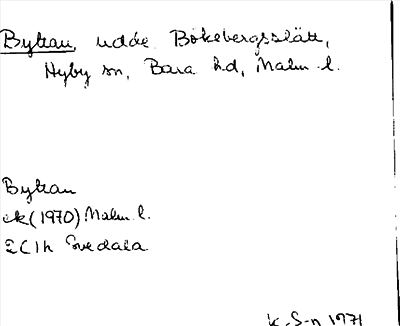 Byttan, udde Bökebergsslätt,
Hyby sn, Bara hd, Malm. l.
Byttan
ek (1970) Malm. l.
2C1h Svedala
K. S-n 1971